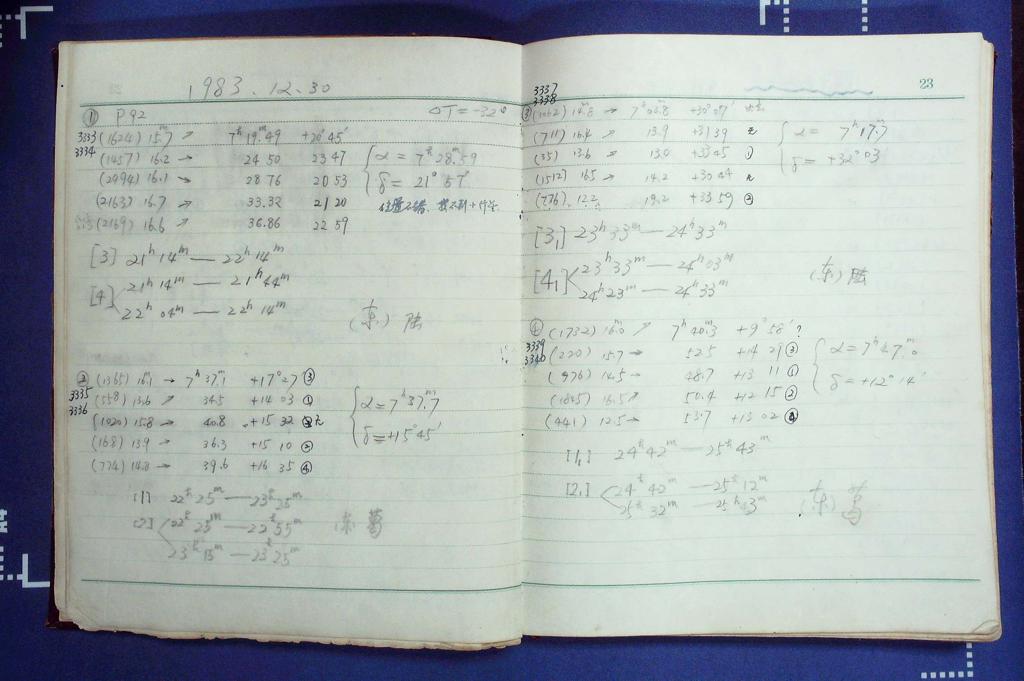 1983.12.30
① P92 ΔT=-32s
3333 (1624) 15.7 ↗ 7h19m.49 +20°45′
3334 (1457) 16.2 → 24 50 23 47
(2494) 16.1 → 28 76 20 53
(2163) 16.7 ↗ 33.32 21 20
(2169) 16.6 ↗ 36.86 22 59
α = 7h28m.59
δ = 21°57′
[3] 21h14m — 22h14m
[4] 21h14m — 21h44m
22h04m — 22h14m
(东) 陆
② (1365) 16.1 → 7h37m.1 +17°27′ ③
3335 (558) 13.6 ↗ 34.5 +14 03 ①
3336 (1020) 15.8 → 40.8 +15 32
(168) 13.9 → 36.3 +15 10 ②
(774) 14.8 → 39.6 +16 35 ④
α = 7h37m.7
δ = +15°45′
[1] 22h25m — 23h25m
[2] 22h25m — 22h55m
23h15m — 23h25m
东 葛
23
3337
3338
③ (1062) 14.8 → 7h03m.8 +30°07′
(711) 16.4 ↗ 13.9 +31 39
(35) 13.6 ↗ 13.0 +33 45 ①
(1512) 16.5 ↗ 14.2 +30 44
(776) 12.2 19.2 +33 59 ②
α = 7h17m.7
δ = +32°03
[3₁] 23h33m — 24h33m
[4₁] 23h33m — 24h03m
24h23m — 24h33m
(东) 陆
④ (1732) 16.0 ↗ 7h40m.3 +9°58′ ?
3339 (220) 15.7 → 52.5 +14 29 ③
3340 (976) 14.5 → 48.7 +13 11 ①
(1805) 16.5 ↗ 50.4 +12 15 ②
(441) 12.5 → 53.7 +13 02 ④
α = 7h47m.0
δ = +12°14′
[1₁] 24h42m — 25h43m
[2₁] 24h42m — 25h12m
25h32m — 25h43m
(东) 葛